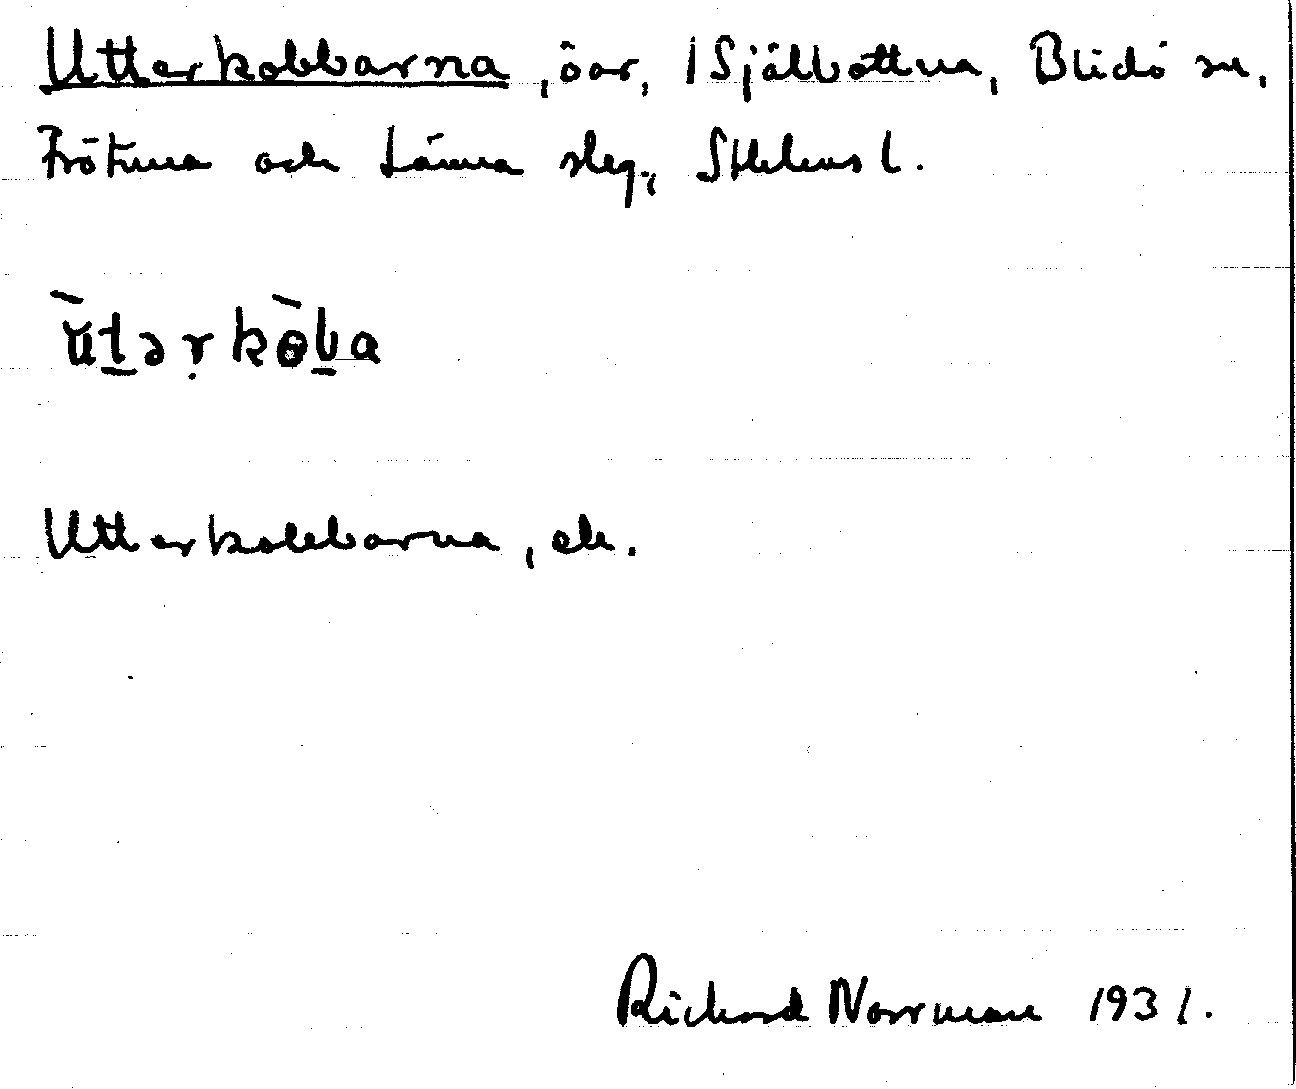 Utterkobbarna, öar, 1 Själbottna, Blidö sn,
Frötuna och Länna slg., Sthlms l.
ùt̲ərkòb̲a
Utterkobbarna, ek.
Richard Norrman 1931.